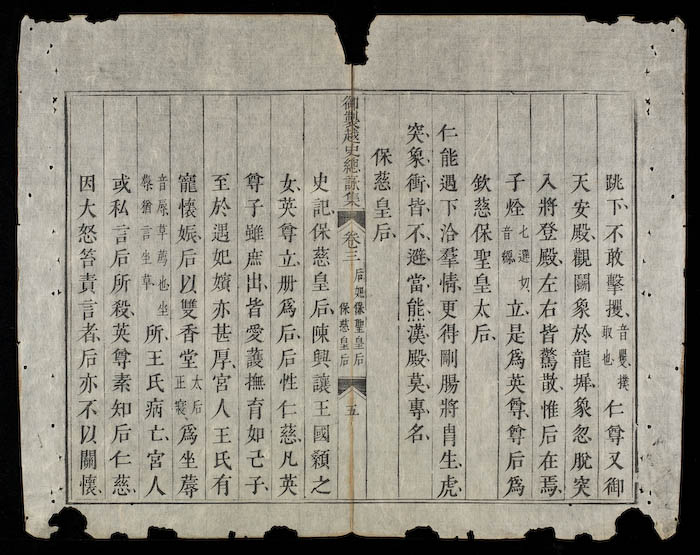 跳下、不敢擊攫、音矍撲取也仁尊又御
天安殿、觀鬭象於龍墀、象忽脫突
入將登殿、左右皆驚散、惟后在焉、
子烇七選切音縓立、是爲英尊、尊后爲
欽慈保聖皇太后、
仁能遇下洽羣情更得剛腸將胄生虎
突象衝皆不避當熊漢殿莫專名
保慈皇后、
御製越史總詠集 卷三 后妃保聖皇后 保慈皇后 五
史記、保慈皇后、陳興讓王國顙之
女、英尊立册爲后、后性仁慈、凡英
尊子雖庶出、皆愛護撫育如己子、
至於遇妃嬪亦甚厚、宮人王氏有
寵懷娠、后以雙香堂太后正寢爲坐蓐
音辱草薦也坐蓐猶言坐草所、王氏病亡、宮人
或私言后所殺、英尊素知后仁慈、
因大怒笞責言者、后亦不以關懷、